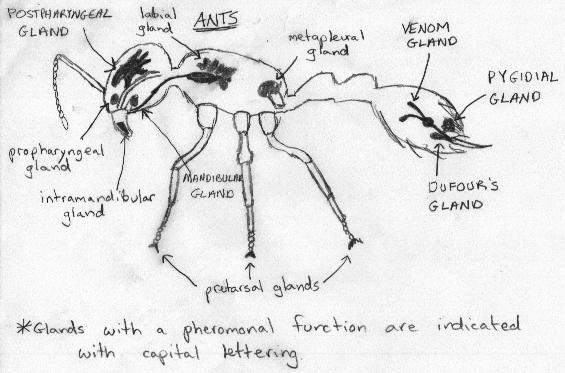 ANTS
POSTPHARYNGEAL
GLAND
labial
gland
metapleural
gland
VENOM
GLAND
PYGIDIAL
GLAND
propharyngeal
gland
intramandibular
gland
MANDIBULAR
GLAND
DUFOUR'S
GLAND
pretarsal glands
*Glands with a pheromonal function are indicated
with capital lettering.